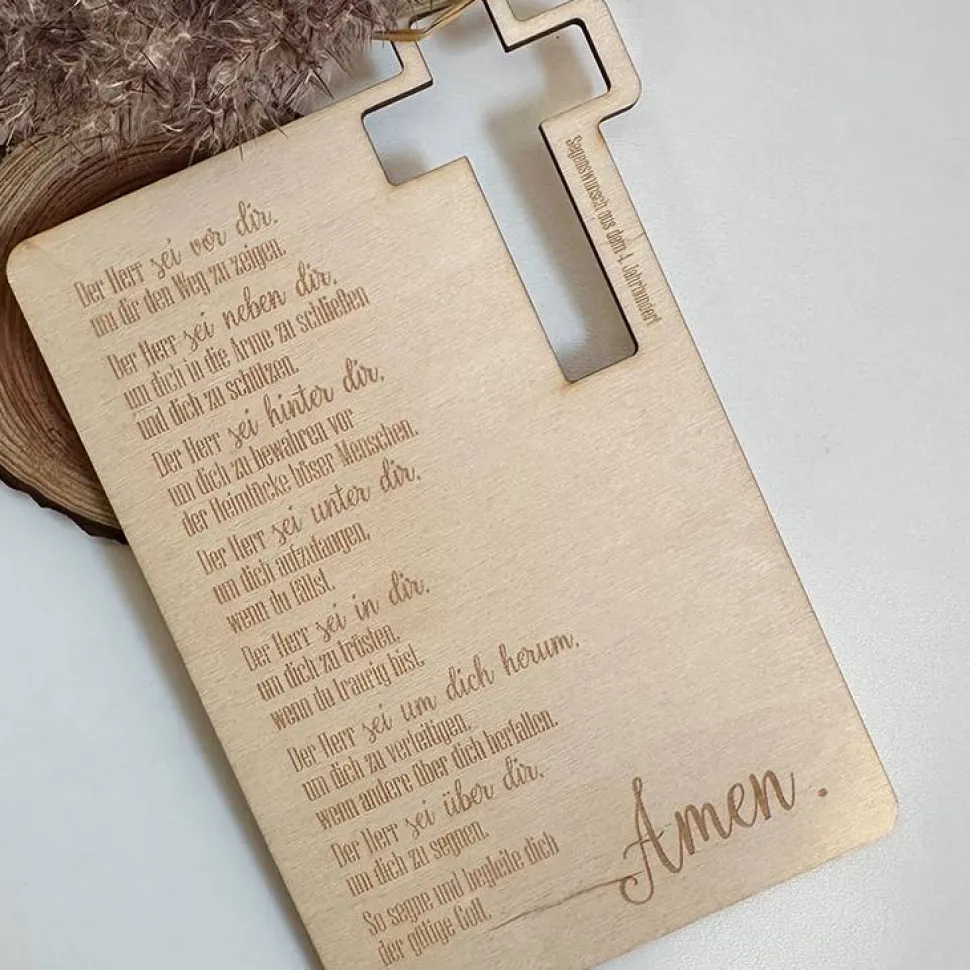 Der Herr sei vor dir,
um dir den Weg zu zeigen.
Der Herr sei neben dir,
um dich in die Arme zu schließen
und dich zu schützen.
Der Herr sei hinter dir,
um dich zu bewahren vor
der Heimtücke böser Menschen.
Der Herr sei unter dir.
um dich aufzufangen,
wenn du fällst.
Der Herr sei in dir.
um dich zu trösten.
wenn du traurig bist.
Der Herr sei um dich herum.
um dich zu verteitigen.
wenn andere über dich herfallen.
Der Herr sei über dir,
um dich zu segnen.
So segne und begleite dich
der gütige Gott.
Amen.
Segenswunsch aus dem 4. Jahrhundert